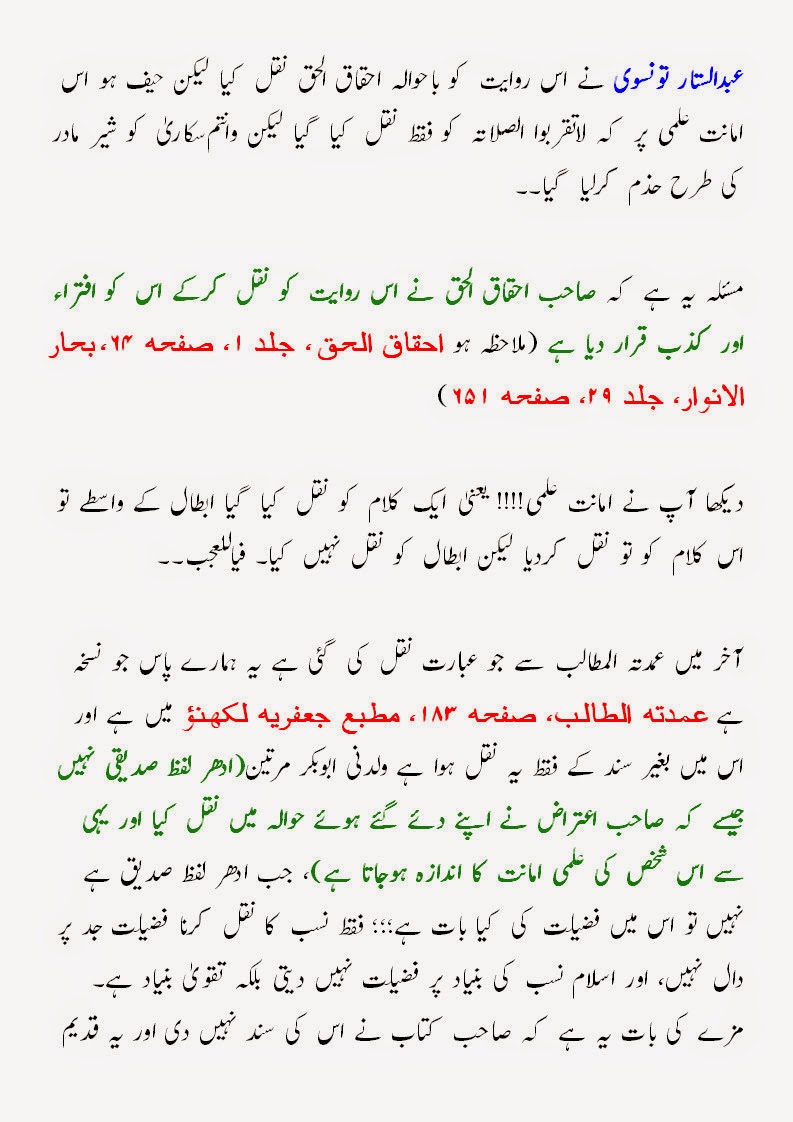 عبدالستار تونسوی نے اس روایت کو باحوالہ احقاق الحق نقل کیا لیکن حیف ہو اس
امانت علمی پر کہ لاتقربوا الصلاتہ کو فقط نقل کیا گیا لیکن وانتم سکاریٰ کو شیر مادر
کی طرح حذم کرلیا گیا۔۔
مسئلہ یہ ہے کہ صاحب احقاق الحق نے اس روایت کو نقل کرکے اس کو افتراء
اور کذب قرار دیا ہے (ملاحظہ ہو احقاق الحق، جلد ۱، صفحہ ۶۴، بحار
الانوار، جلد ۲۹، صفحہ ۶۵۱)
دیکھا آپ نے امانت علمی!!!! یعنیٰ ایک کلام کو نقل کیا گیا ابطال کے واسطے تو
اس کلام کو تو نقل کردیا لیکن ابطال کو نقل نہیں کیا۔ فیاللعجب۔۔
آخر میں عمدتہ المطالب سے جو عبارت نقل کی گئی ہے یہ ہمارے پاس جو نسخہ
ہے عمدتہ الطالب، صفحہ ۱۸۳، مطبع جعفریہ لکھنؤ میں ہے اور
اس میں بغیر سند کے فقط یہ نقل ہوا ہے ولدنی ابوبکر مرتین(ادھر لفظ صدیقی نہیں
جیسے کہ صاحب اعتراض نے اپنے دئے گئے ہوئے حوالہ میں نقل کیا اور یہی
سے اس شخص کی علمی امانت کا اندازہ ہوجاتا ہے)، جب ادھر لفظ صدیق ہے
نہیں تو اس میں فضیلت کی کیا بات ہے؛؛؛ فقط نسب کا نقل کرنا فضیلت جد پر
دال نہیں، اور اسلام نسب کی بنیاد پر فضیلت نہیں دیتی بلکہ تقویٰ بنیاد ہے۔
مزے کی بات یہ ہے کہ صاحب کتاب نے اس کی سند نہیں دی اور یہ قدیم